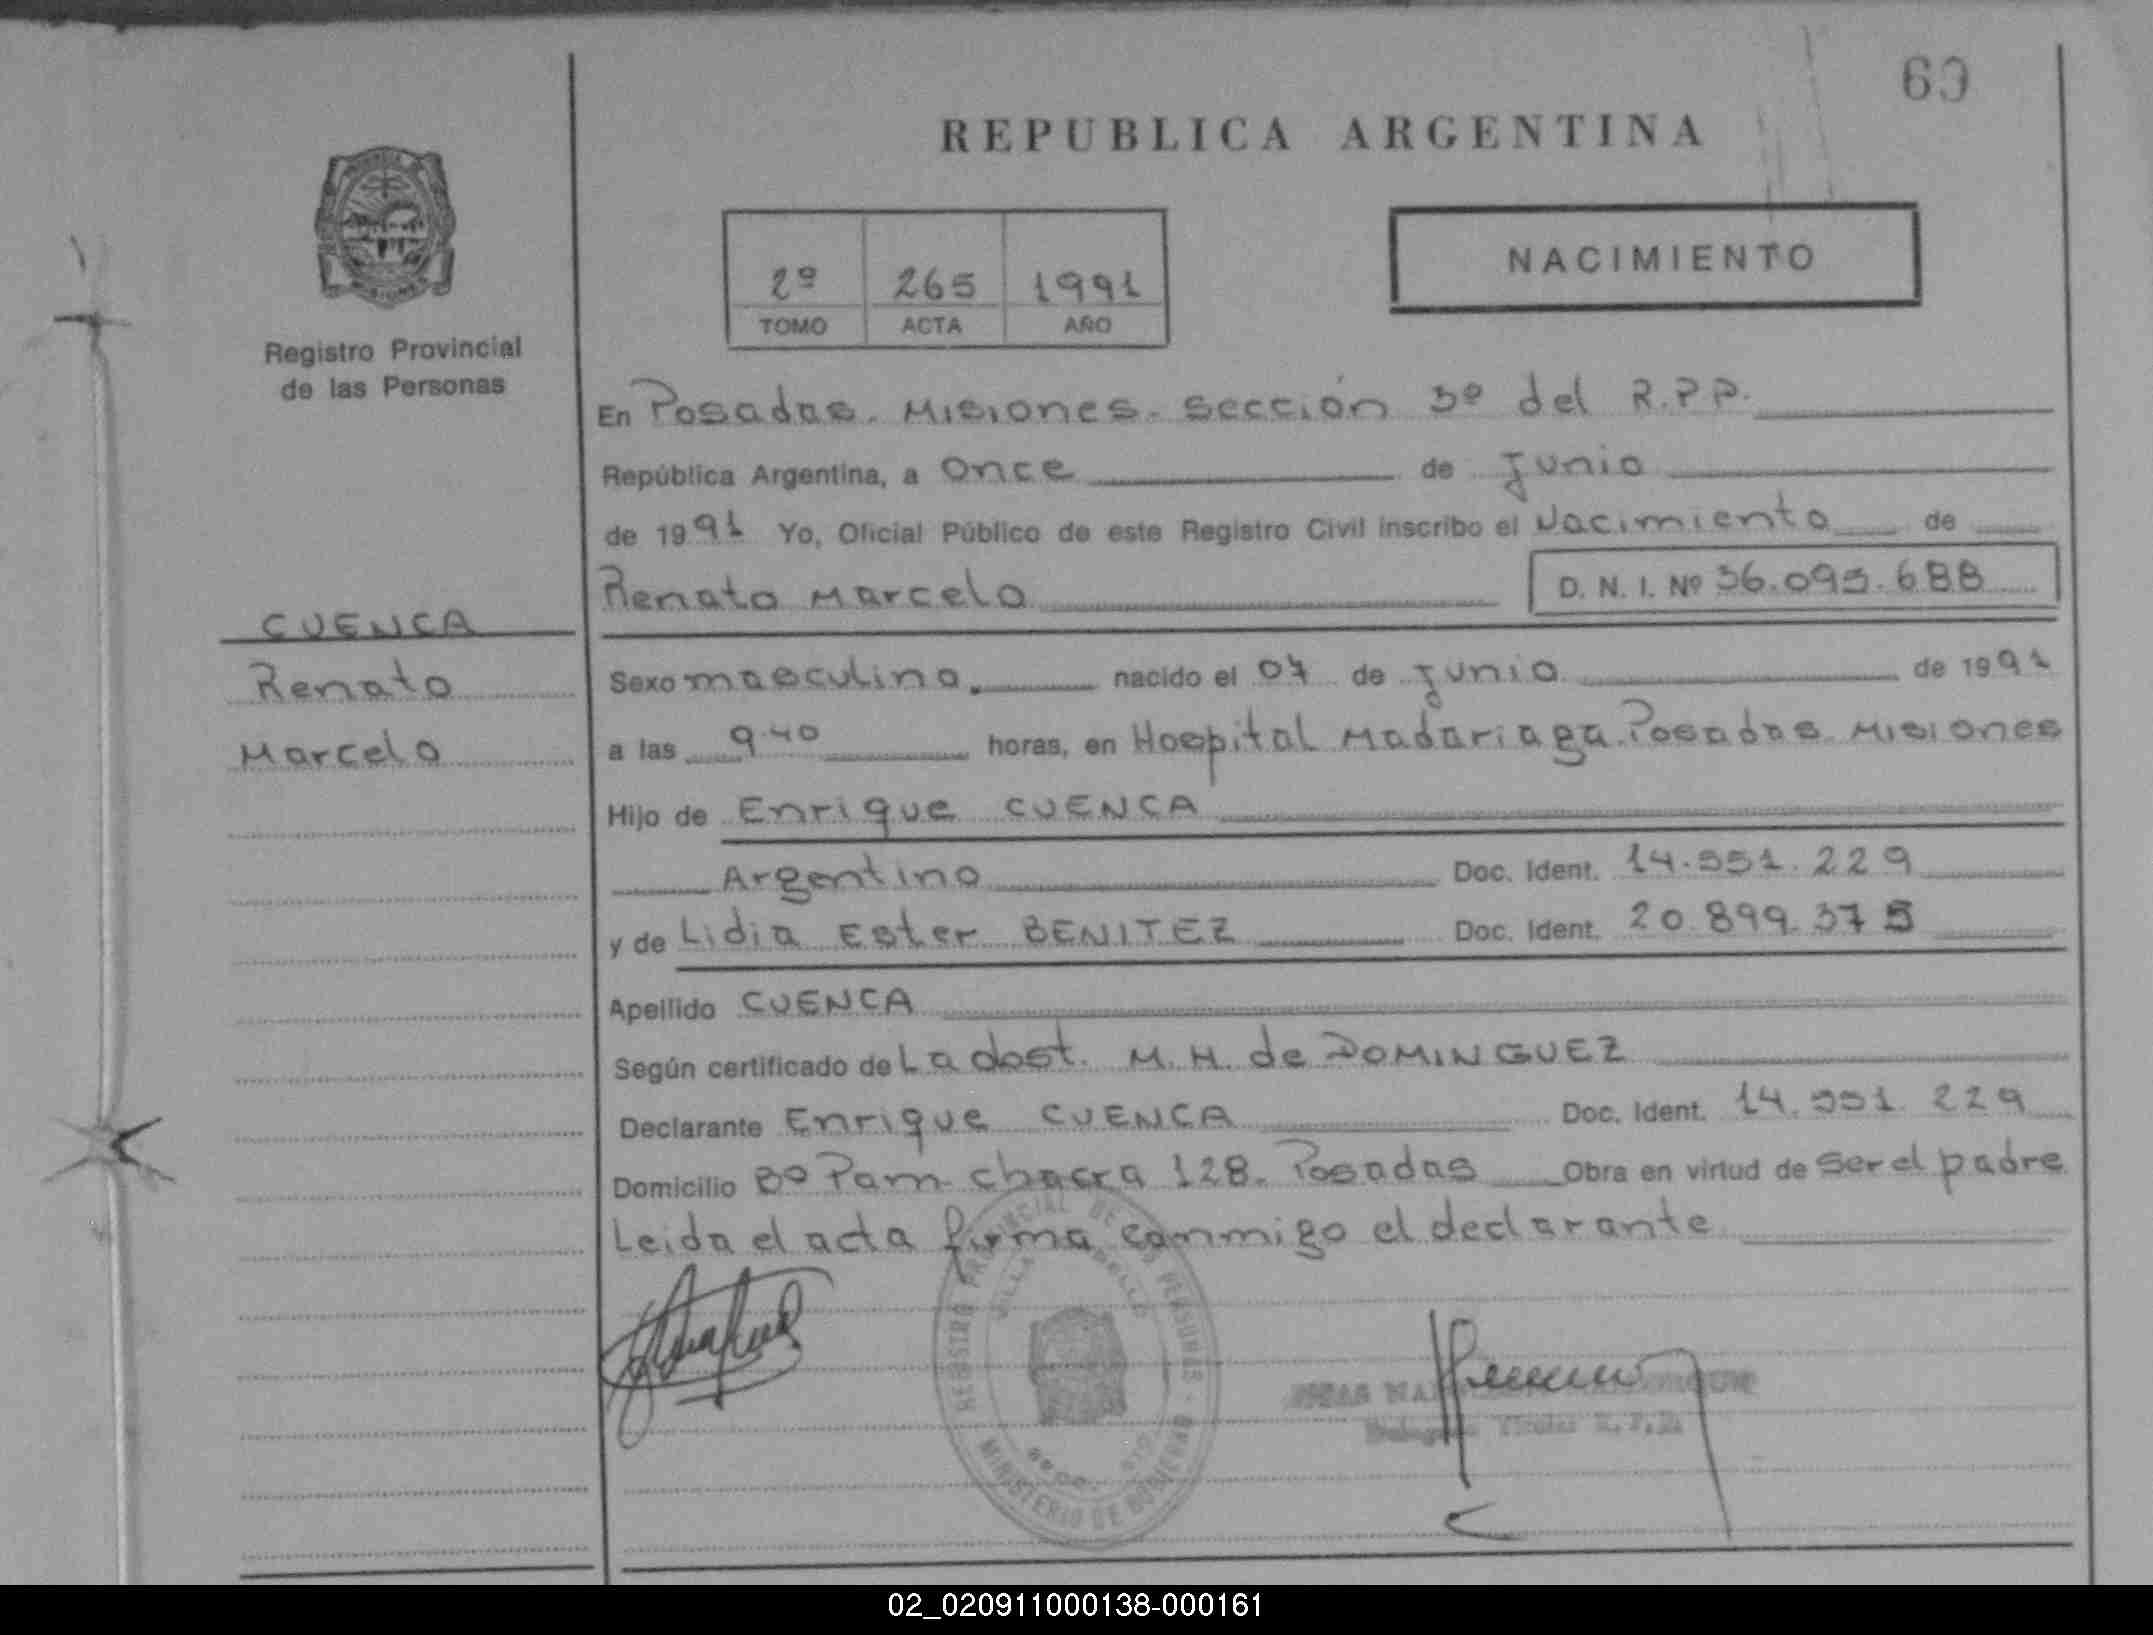 69
REPUBLICA ARGENTINA
NACIMIENTO
2º 265 1991
TOMO ACTA AÑO
Registro Provincial
de las Personas
En Posadas. Misiones. Sección 3º del R.P.P.
República Argentina, a once de Junio
de 1991 Yo, Oficial Público de este Registro Civil inscribo el Nacimiento de
Renato Marcelo D. N. I. Nº 36.095.688
CUENCA
Renato
Marcelo
Sexo masculino. nacido el 07 de Junio de 1991
a las 9.40 horas, en Hospital Madariaga. Posadas. Misiones
Hijo de Enrique CUENCA
Argentino Doc. Ident. 14.551.229
y de Lidia Ester BENITEZ Doc. Ident. 20.899.375
Apellido CUENCA
Según certificado de La obst. M. H. de DOMINGUEZ
Declarante Enrique CUENCA Doc. Ident. 14.551.229
Domicilio Bº Pam chacra 128. Posadas Obra en virtud de ser el padre
Leida el acta firma conmigo el declarante
REGISTRO PROVINCIAL DE LAS PERSONAS
VILLA
MINISTERIO DE GOBIERNO
Titular R.P.P.
02_020911000138-000161